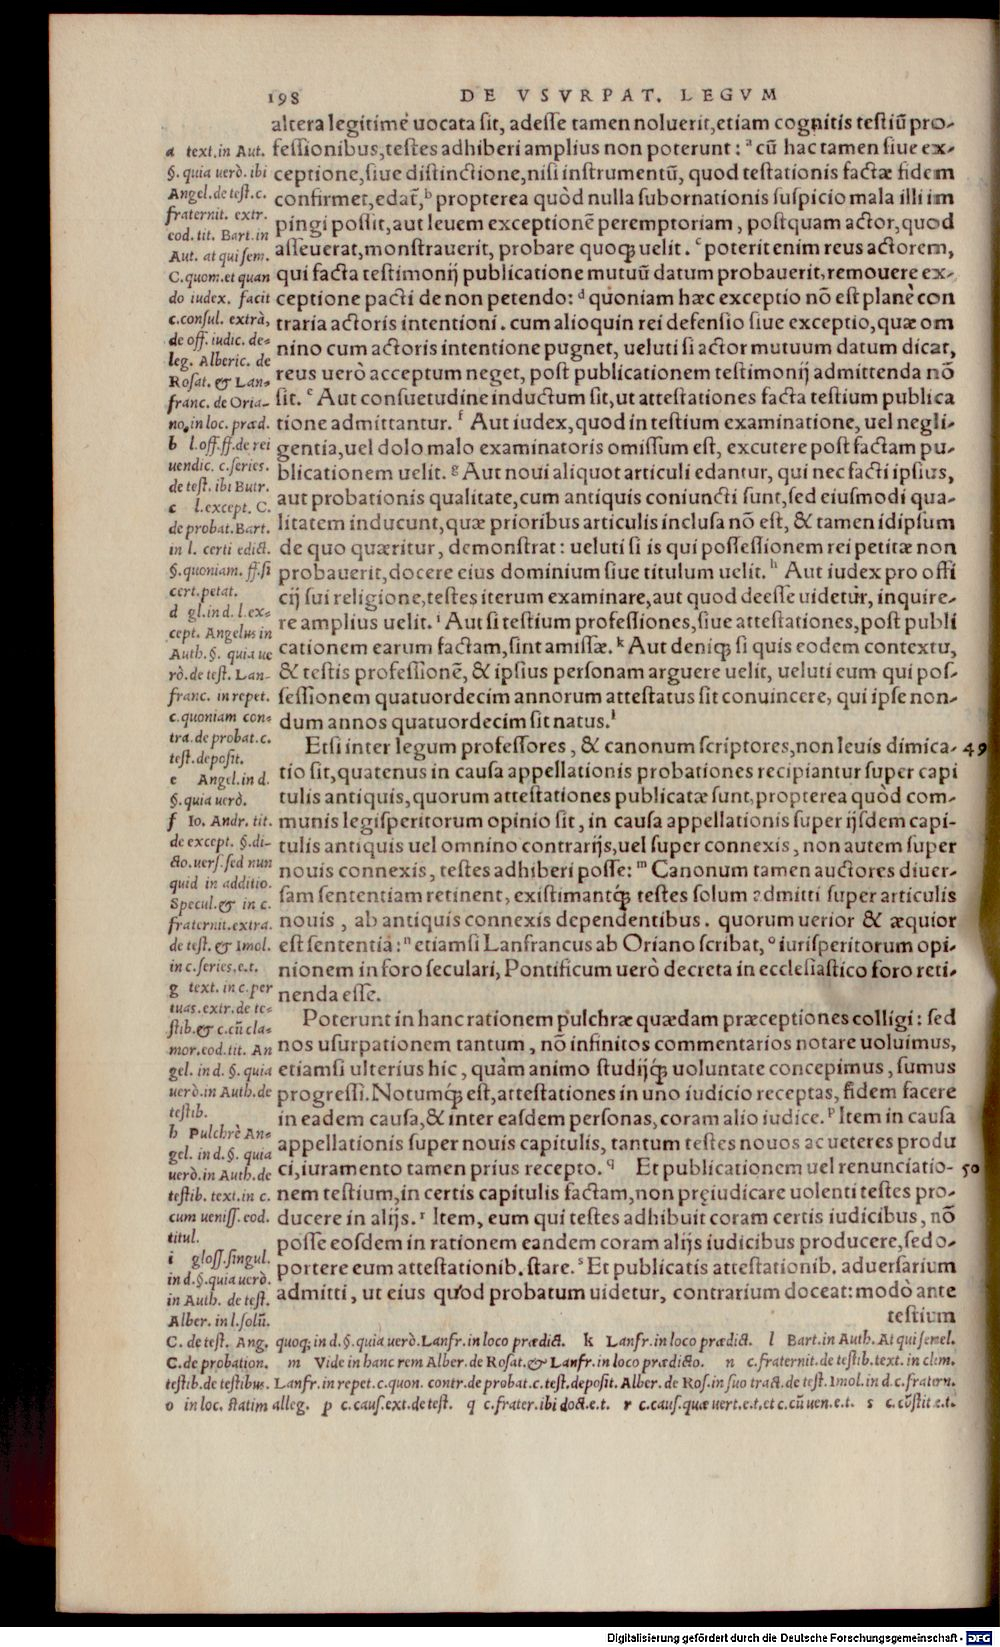 198 DE VSVRPAT. LEGVM
altera legitimè uocata sit, adesse tamen noluerit, etiam cognitis testiũ pro-
fessionibus, testes adhiberi amplius non poterunt: ᵃ cũ hac tamen siue ex-
ceptione, siue distinctione, nisi instrumentũ, quod testationis factæ fidem
confirmet, edat᷑, ᵇ propterea quòd nulla subornationis suspicio mala illi im
pingi possit, aut leuem exceptionẽ peremptoriam, postquam actor, quod
asseuerat, monstrauerit, probare quoqꝫ uelit. ᶜ poterit enim reus actorem,
qui facta testimonij publicatione mutuũ datum probauerit, remouere ex-
ceptione pacti de non petendo: ᵈ quoniam hæc exceptio nõ est planè con
traria actoris intentioni. cum alioquin rei defensio siue exceptio, quæ om
nino cum actoris intentione pugnet, ueluti si actor mutuum datum dicat,
reus uerò acceptum neget, post publicationem testimonij admittenda nõ
sit. ᵉ Aut consuetudine inductum sit, ut attestationes facta testium publica
tione admittantur. ᶠ Aut iudex, quod in testium examinatione, uel negli-
gentia, uel dolo malo examinatoris omissum est, excutere post factam pu-
blicationem uelit. ᵍ Aut noui aliquot articuli edantur, qui nec facti ipsius,
aut probationis qualitate, cum antiquis coniuncti sunt, sed eiusmodi qua-
litatem inducunt, quæ prioribus articulis inclusa nõ est, & tamen idipsum
de quo quæritur, demonstrat: ueluti si is qui possessionem rei petitæ non
probauerit, docere eius dominium siue titulum uelit. ʰ Aut iudex pro offi
cij sui religione, testes iterum examinare, aut quod deesse uidetur, inquire-
re amplius uelit. ⁱ Aut si testium professiones, siue attestationes, post publi
cationem earum factam, sint amissæ. ᵏ Aut deniqꝫ si quis eodem contextu,
& testis professionẽ, & ipsius personam arguere uelit, ueluti eum qui pos-
sessionem quatuordecim annorum attestatus sit conuincere, qui ipse non-
dum annos quatuordecim sit natus. ˡ
Etsi inter legum professores, & canonum scriptores, non leuis dimica- 49
tio sit, quatenus in causa appellationis probationes recipiantur super capi
tulis antiquis, quorum attestationes publicatæ sunt, propterea quòd com-
munis legisperitorum opinio sit, in causa appellationis super ijsdem capi-
tulis antiquis uel omnino contrarijs, uel super connexis, non autem super
nouis connexis, testes adhiberi posse: ᵐ Canonum tamen auctores diuer-
sam sententiam retinent, existimantq́ꝫ testes solum admitti super articulis
nouis, ab antiquis connexis dependentibus. quorum uerior & æquior
est sententia: ⁿ etiamsi Lanfrancus ab Oriano scribat, ᵒ iurisperitorum opi-
nionem in foro seculari, Pontificum uerò decreta in ecclesiastico foro reti-
nenda esse.
Poterunt in hanc rationem pulchræ quædam præceptiones colligi: sed
nos usurpationem tantum, nõ infinitos commentarios notare uoluimus,
etiamsi ulterius hic, quàm animo studijq́ꝫ uoluntate concepimus, sumus
progressi. Notumq́ꝫ est, attestationes in uno iudicio receptas, fidem facere
in eadem causa, & inter easdem personas, coram alio iudice. ᵖ Item in causa
appellationis super nouis capitulis, tantum testes nouos ac ueteres produ
ci, iuramento tamen prius recepto. q Et publicationem uel renunciatio- 50
nem testium, in certis capitulis factam, non pręiudicare uolenti testes pro-
ducere in alijs. ʳ Item, eum qui testes adhibuit coram certis iudicibus, nõ
posse eosdem in rationem eandem coram alijs iudicibus producere, sed o-
portere eum attestationib. stare. ˢ Et publicatis attestationib. aduersarium
admitti, ut eius quod probatum uidetur, contrarium doceat: modò ante
testium
a text. in Aut.
§. quia uerò. ibi
Angel. de test. c.
fraternit. extr.
eod. tit. Bart. in
Aut. at qui sem.
C. quom. et quan
do iudex. facit
c. consul. extrà,
de off. iudic. de-
leg. Alberic. de
Rosat. & Lan-
franc. de Oria-
no, in loc. præd.
b l. off. ff. de rei
uendic. c. series.
de test. ibi Butr.
c l. except. C.
de probat. Bart.
in l. certi edict.
§. quoniam. ff. si
cert. petat.
d gl. in d. l. ex-
cept. Angelus in
Auth. §. quia ue
rò. de test. Lan-
franc. in repet.
c. quoniam con-
tra. de probat. c.
test. deposit.
e Angel. in d.
§. quia uerò.
f Io. Andr. tit.
de except. §. di-
cto. uers. sed nun
quid in additio.
Specul. & in c.
fraternit. extra.
de test. & Imol.
in c. series, e. t.
g text. in c. per
tuas. extr. de te-
stib. & c. cũ cla-
mor. eod. tit. An
gel. in d. §. quia
uerò. in Auth. de
testib.
h Pulchrè An-
gel. in d. §. quia
uerò. in Auth. de
testib. text. in c.
cum ueniss. eod.
titul.
i gloss. singul.
in d. §. quia uerò.
in Auth. de test.
Alber. in l. solũ.
C. de test. Ang. quoqꝫ in d. §. quia uerò. Lanfr. in loco prædict. k Lanfr. in loco prædict. l Bart. in Auth. At qui semel.
C. de probation. m Vide in hanc rem Alber. de Rosat. & Lanfr. in loco prædicto. n c. fraternit. de testib. text. in clem.
testib. de testibus. Lanfr. in repet. c. quon. contr. de probat. c. test. deposit. Alber. de Ros. in suo tract. de test. Imol. in d. c. fratern.
o in loc. statim alleg. p c. caus. ext. de test. q c. frater. ibi doct. e. t. r c. caus. quæ uert. e. t. et c. cũ uen. e. t. s c. cõstit. e. t.
Digitalisierung gefördert durch die Deutsche Forschungsgemeinschaft - DFG